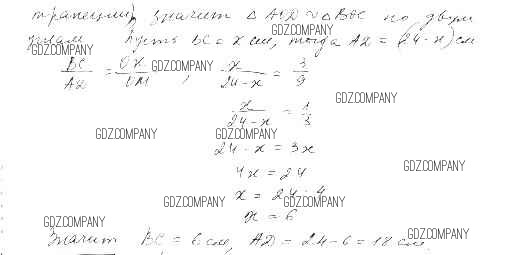 трапеции, значит △ AOD ∾ △ BOC по двум
углам Пусть BC = x см, тогда AD = (24-x) см
GDZ.COMPANY GDZ.COMPANY
BC/AD = OK/OM, x/(24-x) = 3/9
GDZ.COMPANY
x/(24-x) = 1/3
GDZ.COMPANY
GDZ.COMPANY GDZ.COMPANY
24-x = 3x
4x = 24
GDZ.COMPANY
x = 24 : 4
GDZ.COMPANY GDZ.COMPANY
x = 6
GDZ.COMPANY
Значит BC = 6 см, AD = 24-6 = 18 см.
GDZ.COMPANY